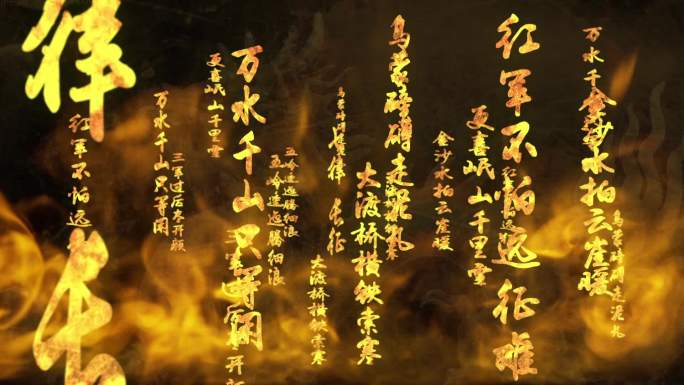 乌蒙磅礴走泥丸
万水千
金沙水拍云崖暖
红军不怕远征难
更喜岷山千里雪
金沙水拍云崖暖
乌蒙磅礴走泥丸
大渡桥横铁索寒
律 长征
大渡桥横铁索寒
五岭逶迤腾细浪
五岭逶迤腾细浪
万水千山只等闲
更喜岷山千里雪
三军过后尽开颜
万水千山只等闲
红军不怕远
律 长